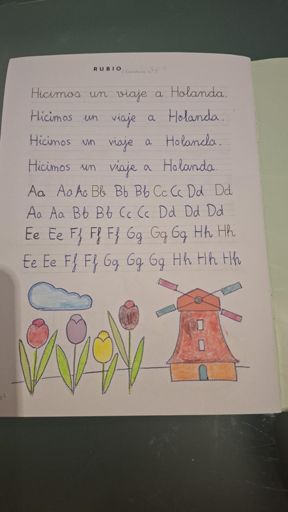 RUBIO
Hicimos un viaje a Holanda.
Hicimos un viaje a Holanda.
Hicimos un viaje a Holanda.
Hicimos un viaje a Holanda.
Aa Aa Aa Bb Bb Bb Cc Cc Dd Dd
Aa Aa Bb Bb Cc Cc Dd Dd Dd
Ee Ee Ff Ff Ff Gg Gg Gg Hh Hh
Ee Ee Ff Ff Gg Gg Gg Hh Hh Hh